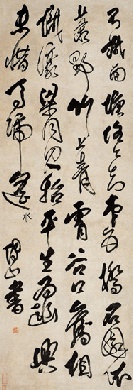 不識南塘路今知第五橋名園依
綠水野竹上青霄谷口舊相
得濠梁同見招平生為幽興
未惜馬蹄遙
傅山書